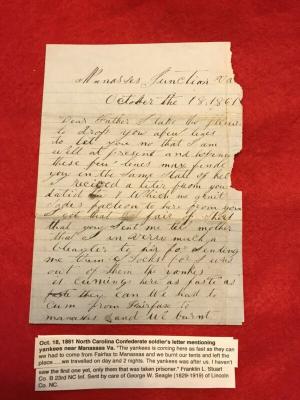 Manasses Junction Va
October the 18, 1861
Dear Father I take the
to drop you a few lines
to let you no that I am
well at present and hoping
these few lines may find
you in the same State of
I recieved a from you
which me great
to here from you
I got that of
that you sent me tell mother
that I am verry much a
to her for sending
me them Socks for I was
out of them the yankes
is cumings here as faste as
faste they can the had to
cum from Fairfax to
manassas and we burnt
Oct. 18, 1861 North Carolina Confederate soldier's letter mentioning
yankees near Manassas Va. "The yankies is coming here as fast as they can
we had to come from Fairfax to Manassas and we burnt our tents and left the
place.....we travelled on day and 2 nights. The yankees was after us. I haven't
saw the first one yet, only them that was taken prisoner." Franklin L. Stuart
Co. B 23rd NC Inf. Sent by care of George W. Seagle (1829-1919) of Lincoln
Co. NC.